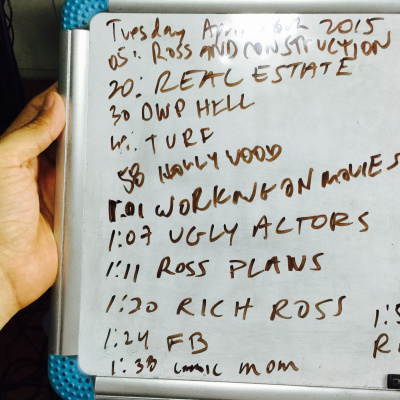 Tuesday 2015
05: ROSS AND CONSTRUCTION
20: REAL ESTATE
30 DWP HELL
TURF
58 HOLLYWOOD
1:01 WORKING ON MOVIES
1:07 UGLY ACTORS
1:11 ROSS PLANS
1:20 RICH ROSS
1:24 FB
1:38 mom
1:5
R